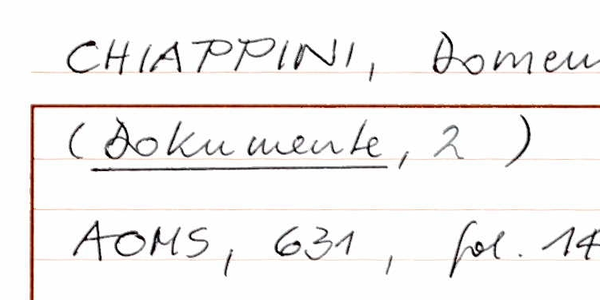 CHIAPPINI, Domen
(Dokumente, 2)
AOMS, 631, fol. 14